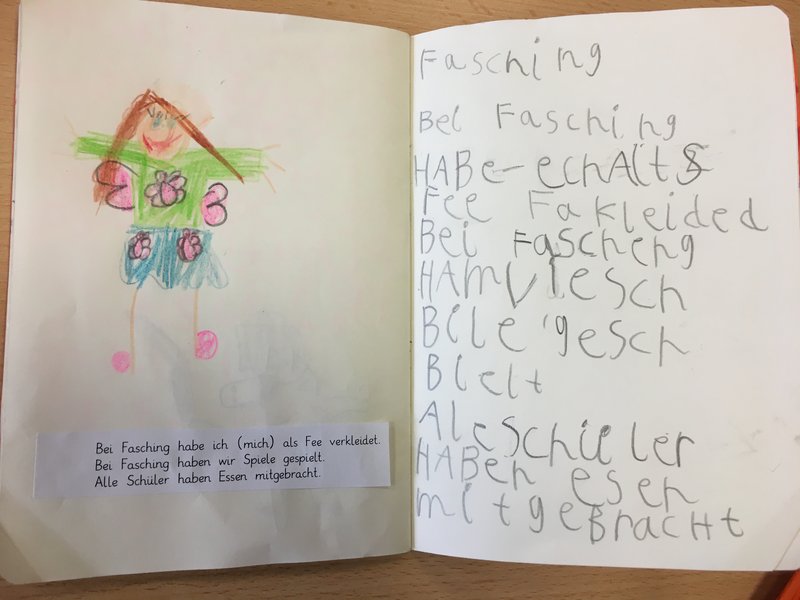 Bei Fasching habe ich (mich) als Fee verkleidet.
Bei Fasching haben wir Spiele gespielt.
Alle Schüler haben Essen mitgebracht.
Fasching
Bei Fasching
HABe-echAltS
Fee Fakleided
Bei Fascheng
HAmViesch
BCle'gesch
Bielt
AleSchieler
HABen esen
mitgeBracht